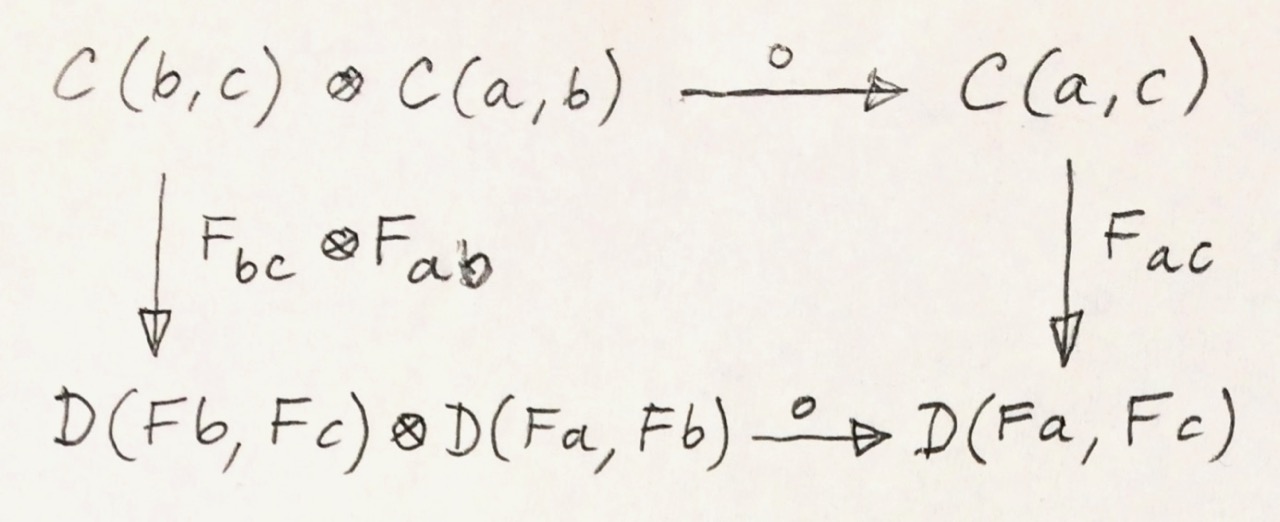 C(b,c) ⊗ C(a,b) ∘ C(a,c)
F_bc ⊗ F_ab F_ac
D(Fb, Fc) ⊗ D(Fa, Fb) ∘ D(Fa, Fc)